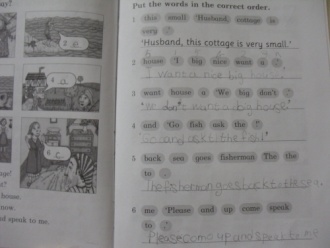 ay?
Put the words in the correct order.
1 this small 'Husband, cottage is
very .'
'Husband, this cottage is very small.'
2 house 'I big nice want a .'
I want a nice big house
3 want house a 'We big don't .'
We don't want a big house
4 and 'Go fish ask the .'
Go and ask the fish
5 back sea goes fisherman The the
to .
The fisherman goes back to the sea.
6 me 'Please and up come speak
to .'
Please come up and speak to me
house.
now.
nd speak to me.